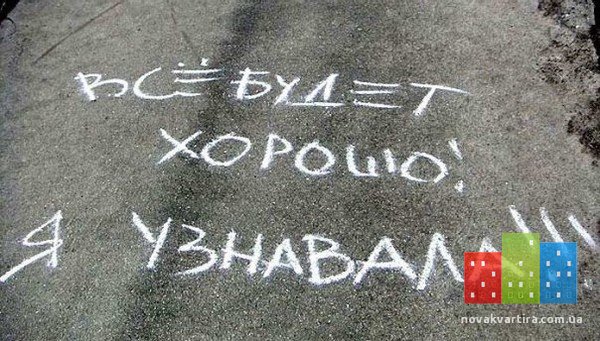 ВСЁ БУДЕТ
ХОРОШО!
Я УЗНАВАЛА!!!
novakvartira.com.ua